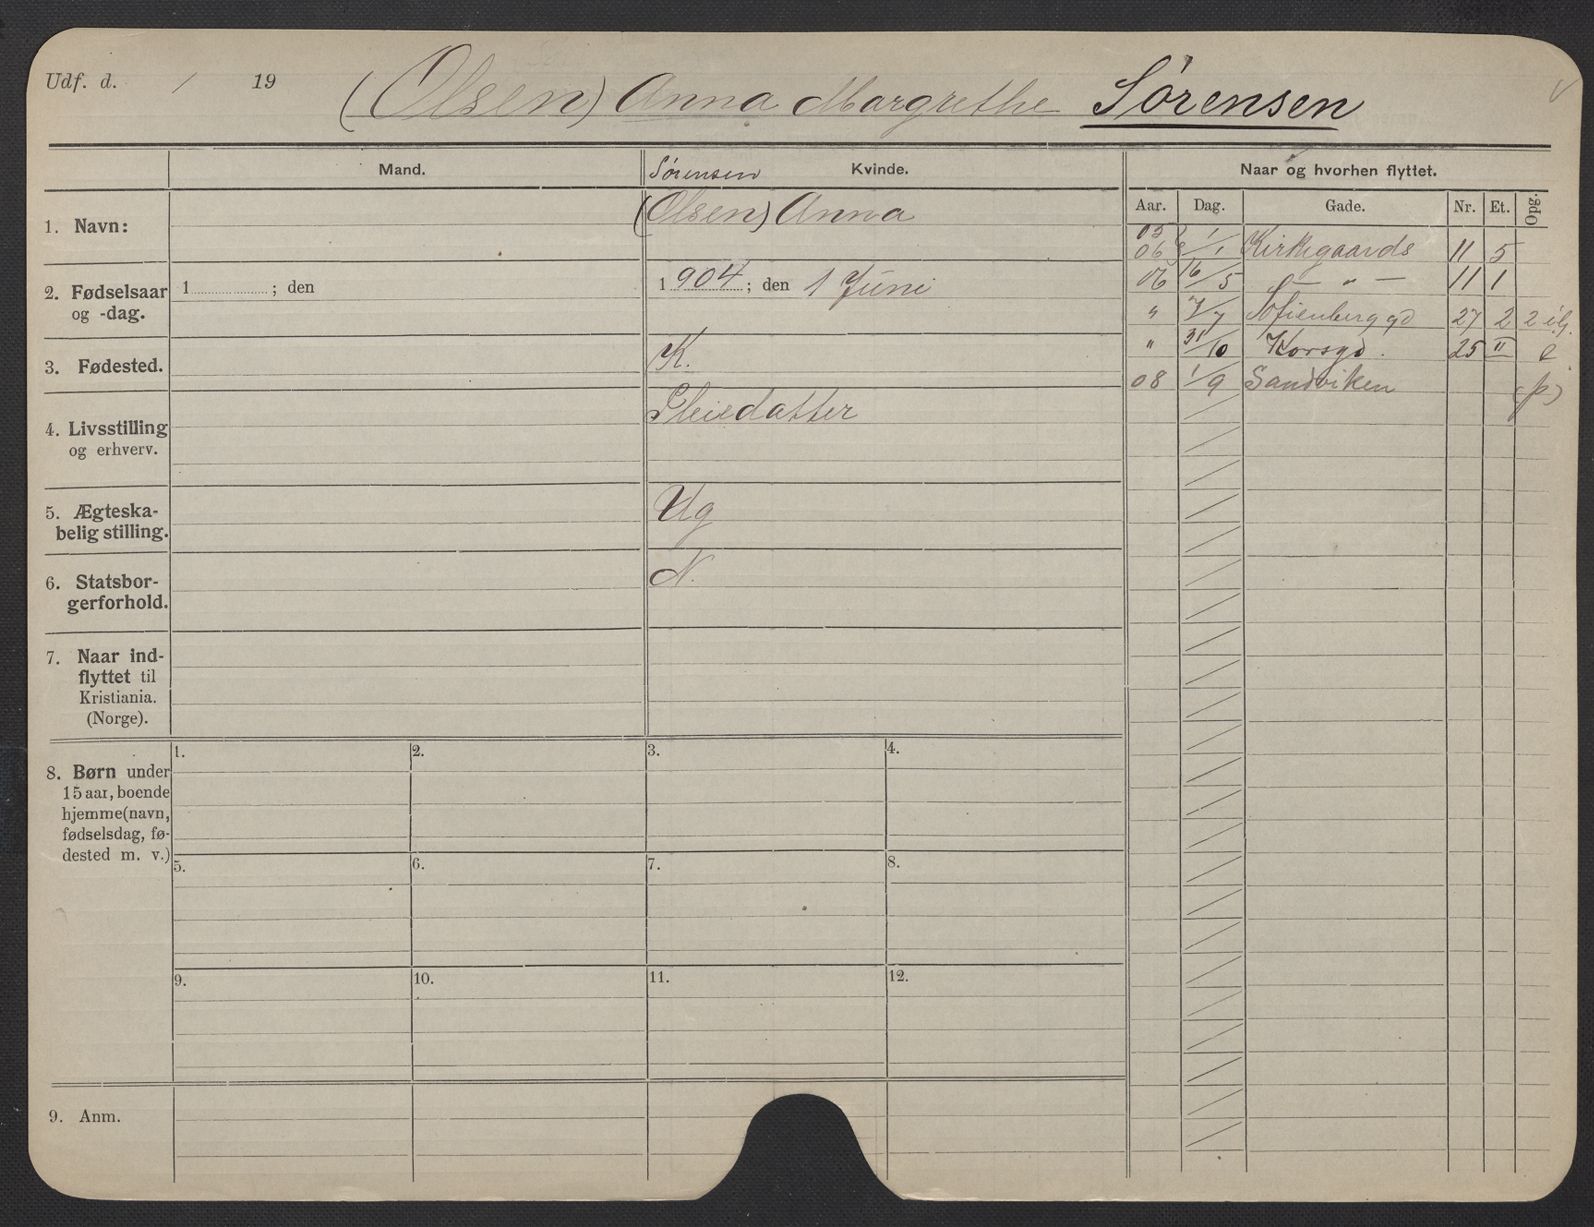 Udf. d. / 19
(Olsen) Anna Margrethe Sørensen
Mand.
Sørensen Kvinde.
Naar og hvorhen flyttet.
Aar. Dag. Gade. Nr. Et. Opg.
1. Navn:
(Olsen) Anna
2. Fødselsaar
og -dag.
1 ; den
1904 ; den 1 Juni
3. Fødested.
K.
4. Livsstilling
og erhverv.
Pleiedatter
5. Ægteska-
belig stilling.
Ug
6. Statsbor-
gerforhold.
N.
7. Naar ind-
flyttet til
Kristiania.
(Norge).
05
06 1/1 Kirkegaards 11 5
06 16/5 — " — 11 1
" 7/7 Sofienberggd 27 2 2
" 31/10 Korsgd. 25 II e
08 1/9 Sandviken (p)
8. Børn under
15 aar, boende
hjemme (navn,
fødselsdag, fø-
dested m. v.)
1. 2. 3. 4.
5. 6. 7. 8.
9. 10. 11. 12.
9. Anm.